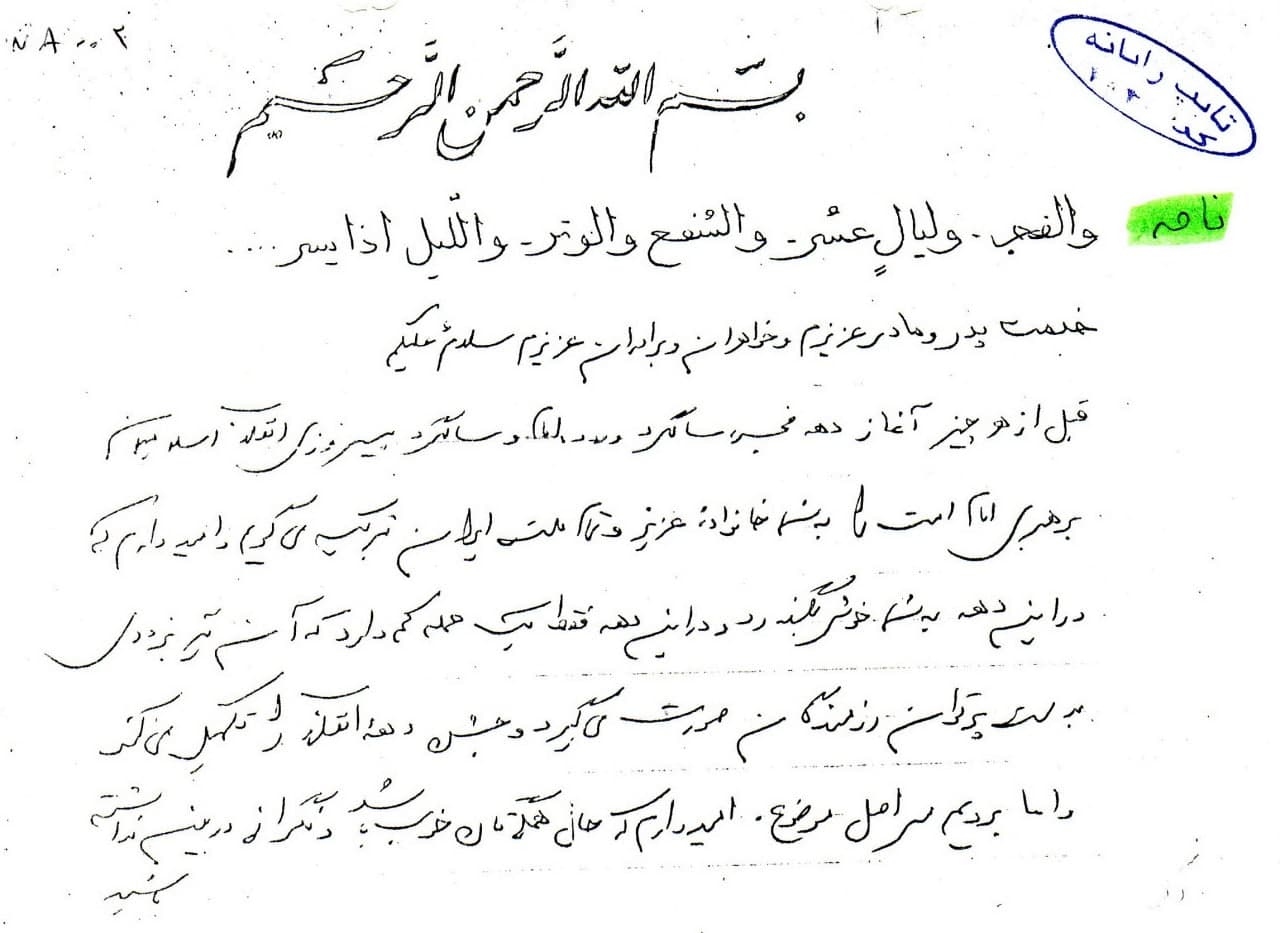 تایپ رایانه
شد
بسم الله الرحمن الرحیم
نامه
والفجر - ولیالٍ عشر - والشفع والوتر - واللّیل اذا یسر ....
خدمت پدر و مادر عزیزم و خواهران و برادران عزیزم سلامٌ علیکم
قبل از هر چیز آغاز دهه فجر، سالگرد ورود امام و سالگرد پیروزی انقلاب اسلامیمان
برهبری امام امت را به شما خانوادهٔ عزیز و تمام ملت ایران تبریک می گویم و امیدوارم که
در این دهه به شما خوش بگذرد و در این دهه فقط یک حمله کم دارد که آن نیز بزودی
بدست پرتوان رزمندگان صورت می گیرد و جشن دههٔ انقلاب را تکمیل می کند
و اما برویم سر اصل موضوع. امیدوارم که حال همگی تان خوب باشد و نگرانی در بین نداشته
باشید